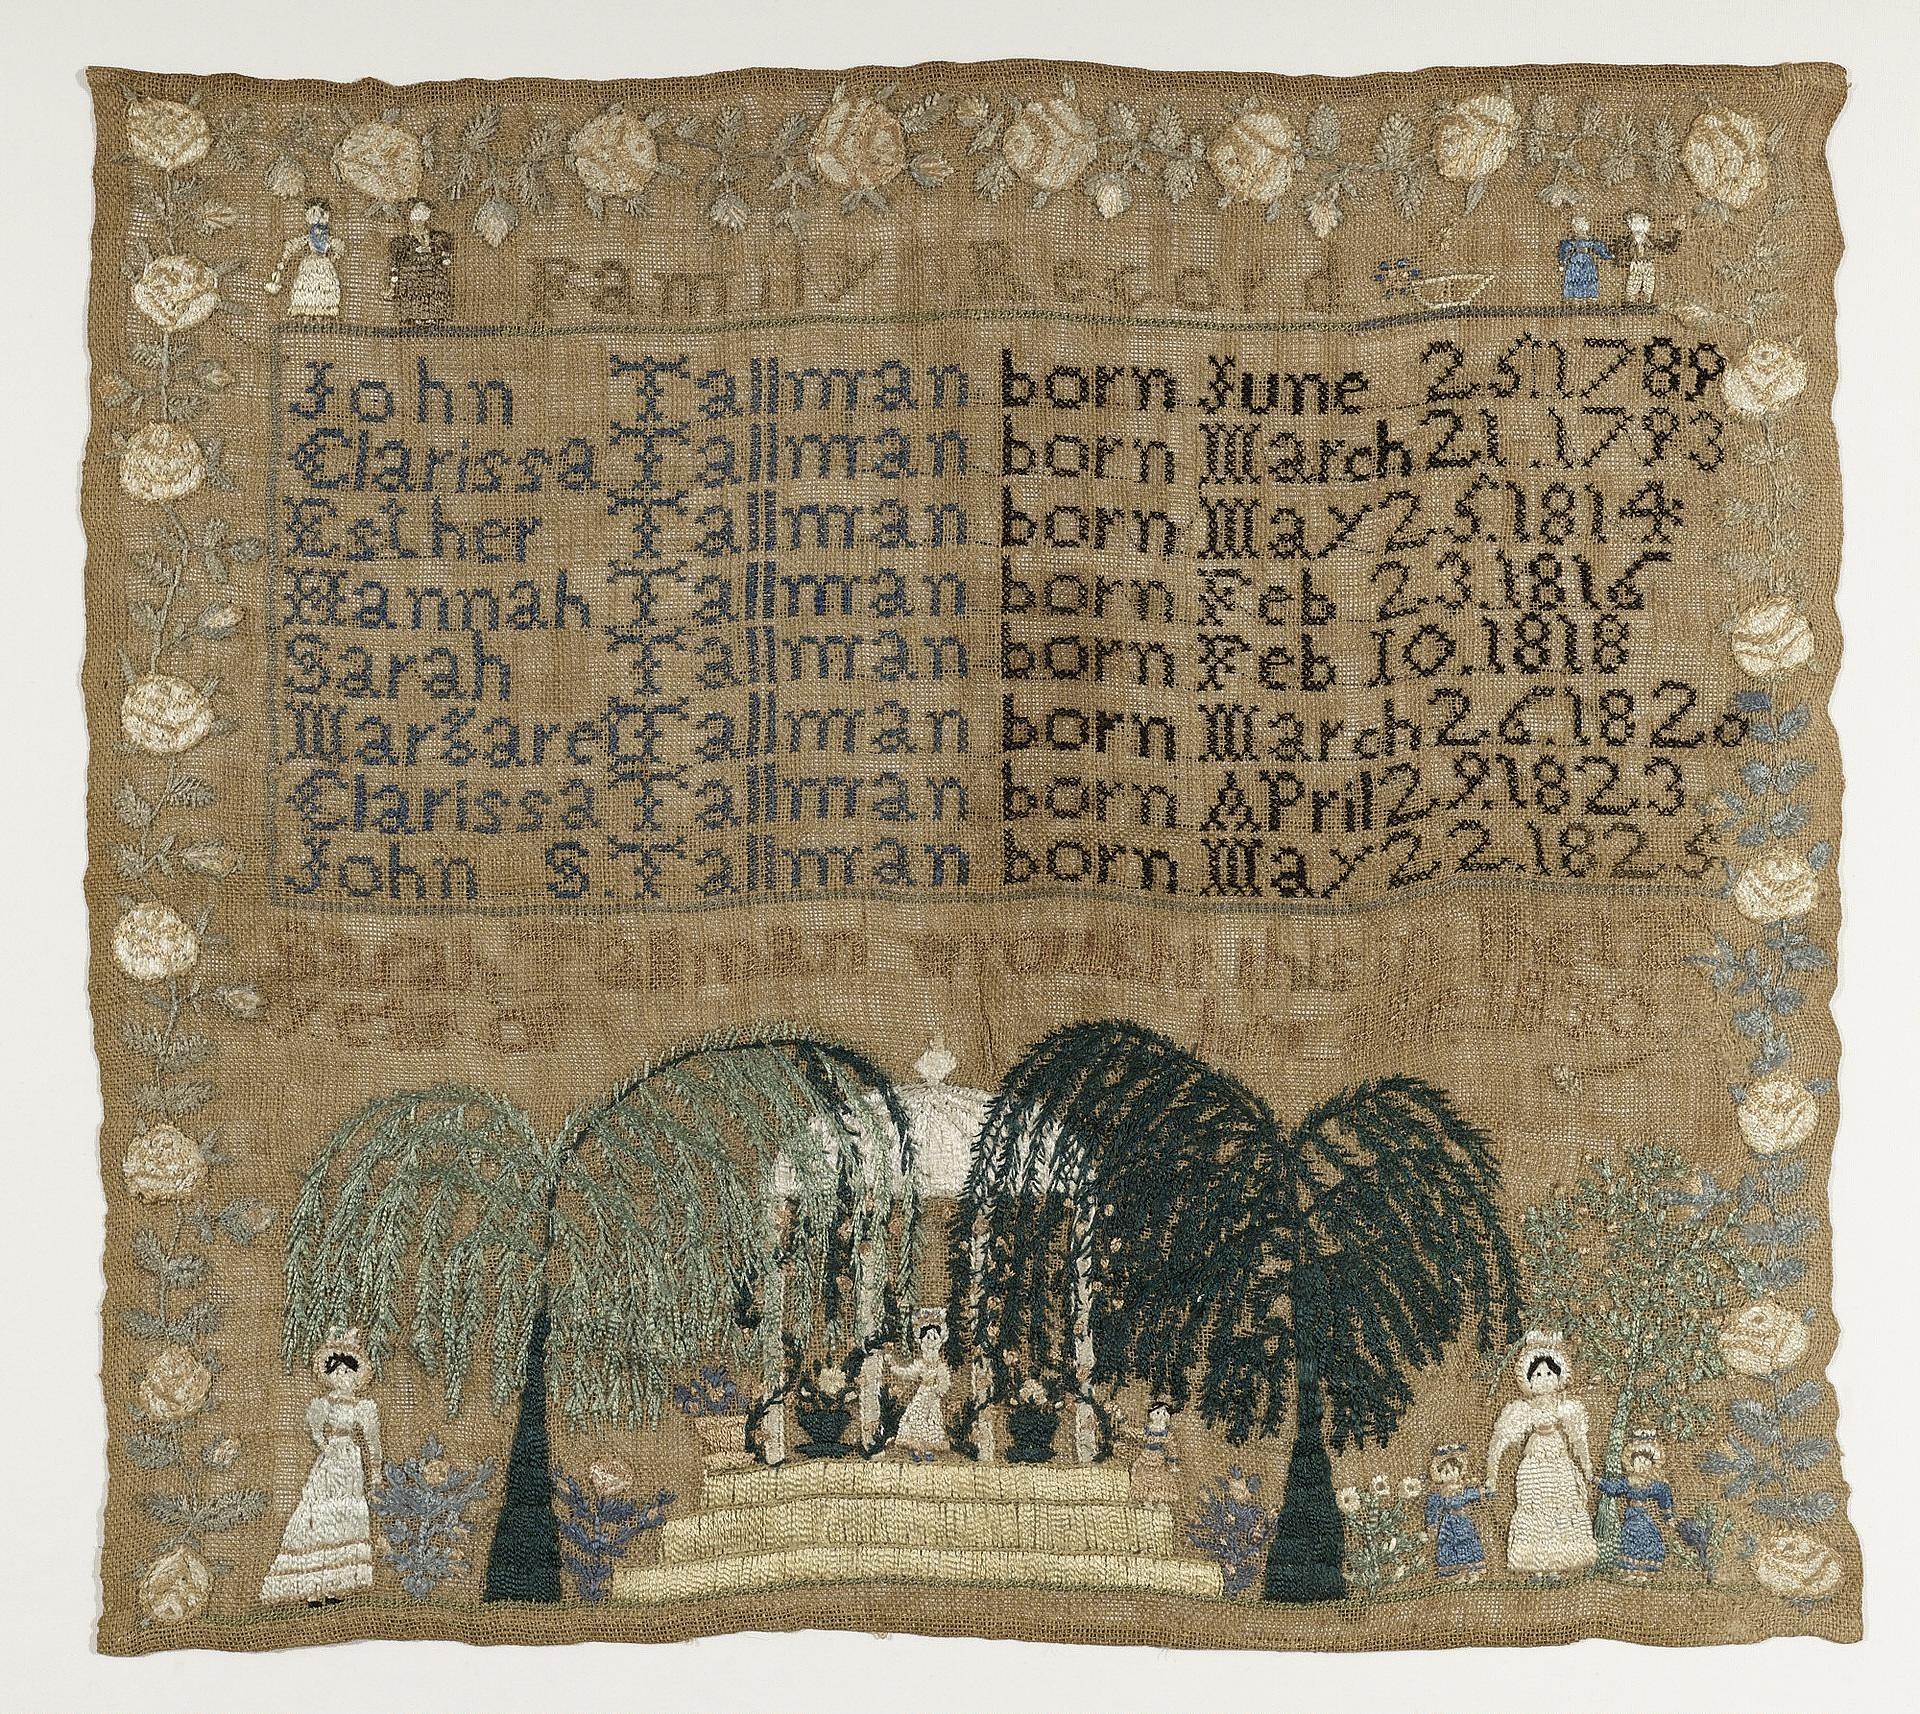 Family Record
John Tallman born June 25.1789
Clarissa Tallman born March 21.1793
Esther Tallman born May 25.1814
Hannah Tallman born Feb 23.1816
Sarah Tallman born Feb 10.1818
Margaret Tallman born March 26.1820
Clarissa Tallman born APril 29.1823
John S. Tallman born May 22.1825
Sarah Tallman wrought this in
year of 1830